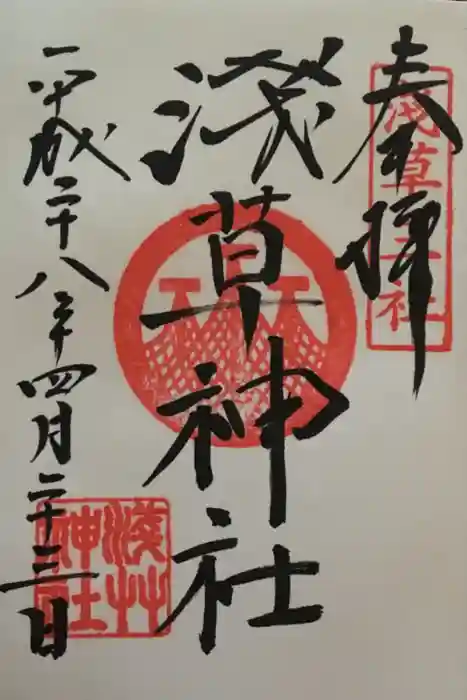 奉拝
浅草三社
淺草神社
平成二十八年四月二十三日
淺草神社